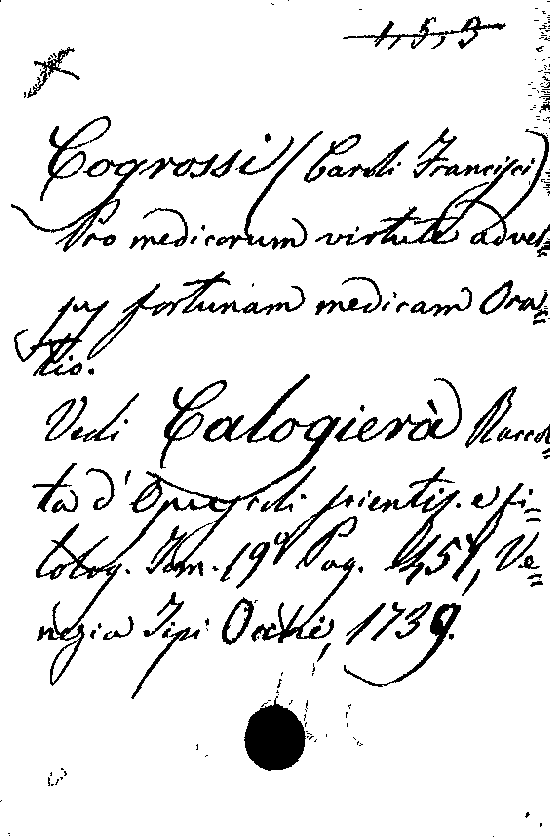 1, 5, 3
Cogrossi (Caroli Francisci)
Pro medicorum virtute adver=
sus fortunam medicam Ora=
tio.
Vedi Calogierà Raccol=
ta d'Opuscoli scientif. e fi=
lolog. Tom. 19° Pag. 457, Ve=
nezia Tipi Occhi, 1739.